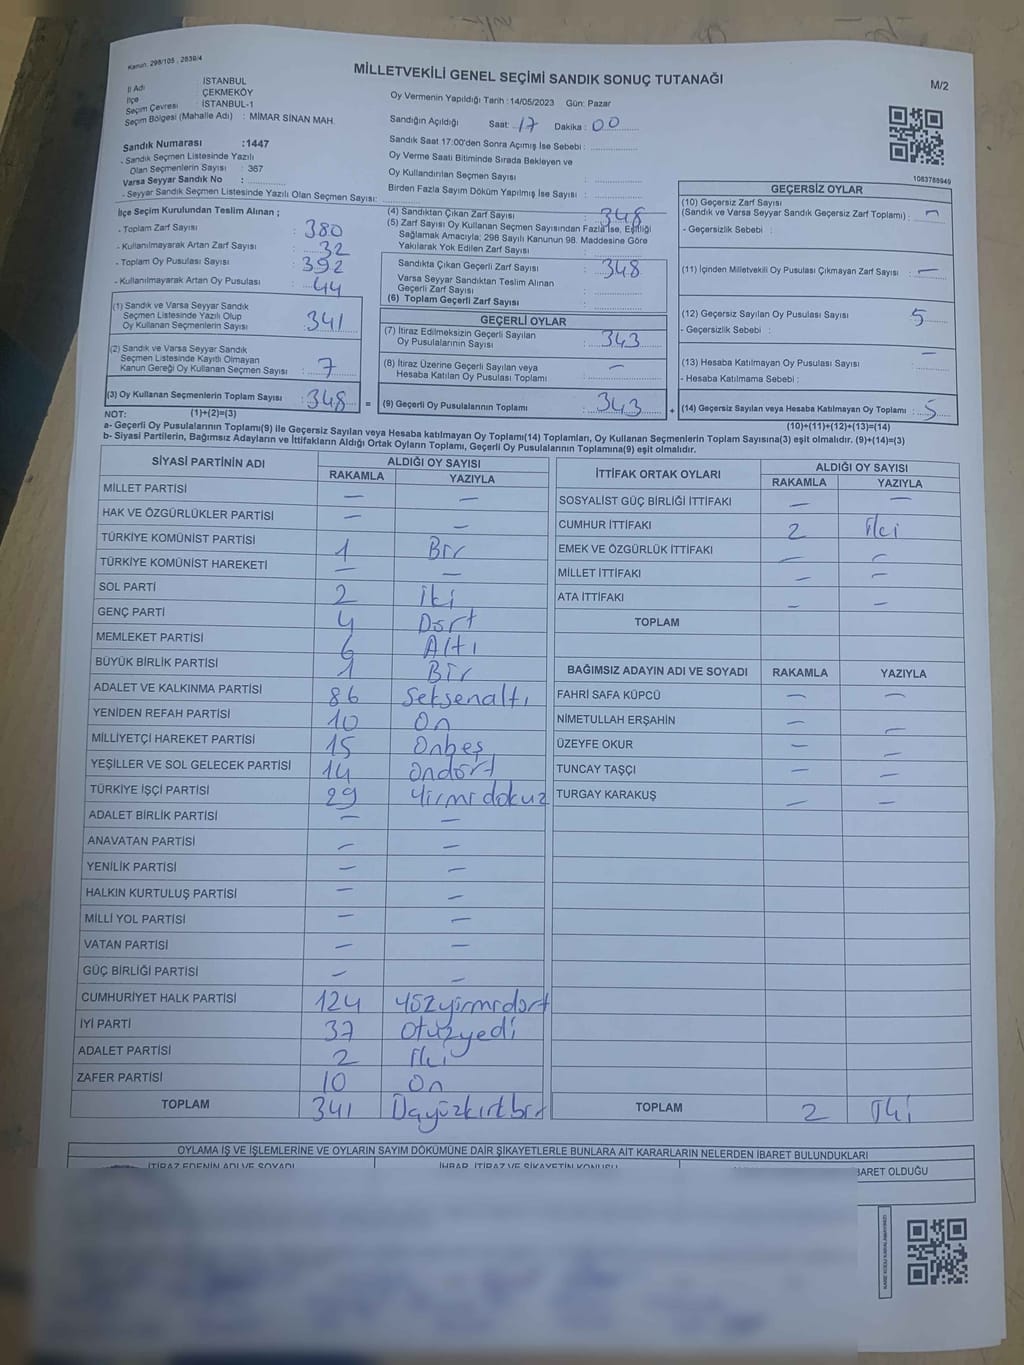 Kanun. 298/105 , 2839/4
MİLLETVEKİLİ GENEL SEÇİMİ SANDIK SONUÇ TUTANAĞI
M/2
İl Adı : İSTANBUL
İlçe : ÇEKMEKÖY
Seçim Çevresi : İSTANBUL-1
Seçim Bölgesi (Mahalle Adı) : MİMAR SİNAN MAH.
Oy Vermenin Yapıldığı Tarih : 14/05/2023 Gün: Pazar
Sandığın Açıldığı Saat: 17 Dakika : 00
Sandık Saat 17:00'den Sonra Açımış İse Sebebi :
Oy Verme Saati Bitiminde Sırada Bekleyen ve
Oy Kullandırılan Seçmen Sayısı :
Birden Fazla Sayım Döküm Yapılmış İse Sayısı :
1083788949
Sandık Numarası :1447
- Sandık Seçmen Listesinde Yazılı
Olan Seçmenlerin Sayısı : 367
Varsa Seyyar Sandık No :
- Seyyar Sandık Seçmen Listesinde Yazılı Olan Seçmen Sayısı:
İlçe Seçim Kurulundan Teslim Alınan ;
- Toplam Zarf Sayısı : 380
- Kullanılmayarak Artan Zarf Sayısı : 32
- Toplam Oy Pusulası Sayısı : 392
- Kullanılmayarak Artan Oy Pusulası : 44
(1) Sandık ve Varsa Seyyar Sandık
Seçmen Listesinde Yazılı Olup
Oy Kullanan Seçmenlerin Sayısı : 341
(2) Sandık ve Varsa Seyyar Sandık
Seçmen Listesinde Kayıtlı Olmayan
Kanun Gereği Oy Kullanan Seçmen Sayısı : 7
(3) Oy Kullanan Seçmenlerin Toplam Sayısı : 348 =
(4) Sandıktan Çıkan Zarf Sayısı : 348
(5) Zarf Sayısı Oy Kullanan Seçmen Sayısından Fazla İse, Eşitliği
Sağlamak Amacıyla; 298 Sayılı Kanunun 98. Maddesine Göre
Yakılarak Yok Edilen Zarf Sayısı :
Sandıkta Çıkan Geçerli Zarf Sayısı : 348
Varsa Seyyar Sandıktan Teslim Alınan
Geçerli Zarf Sayısı :
(6) Toplam Geçerli Zarf Sayısı :
GEÇERLİ OYLAR
(7) İtiraz Edilmeksizin Geçerli Sayılan
Oy Pusulalarının Sayısı : 343
(8) İtiraz Üzerine Geçerli Sayılan veya
Hesaba Katılan Oy Pusulası Toplamı : —
(9) Geçerli Oy Pusulalarının Toplamı : 343 +
GEÇERSİZ OYLAR
(10) Geçersiz Zarf Sayısı
(Sandık ve Varsa Seyyar Sandık Geçersiz Zarf Toplamı) : —
- Geçersizlik Sebebi :
(11) İçinden Milletvekili Oy Pusulası Çıkmayan Zarf Sayısı : —
(12) Geçersiz Sayılan Oy Pusulası Sayısı : 5
- Geçersizlik Sebebi :
(13) Hesaba Katılmayan Oy Pusulası Sayısı : —
- Hesaba Katılmama Sebebi :
(14) Geçersiz Sayılan veya Hesaba Katılmayan Oy Toplamı : 5
NOT: (1)+(2)=(3) (10)+(11)+(12)+(13)=(14)
a- Geçerli Oy Pusulalarının Toplamı(9) ile Geçersiz Sayılan veya Hesaba katılmayan Oy Toplamı(14) Toplamları, Oy Kullanan Seçmenlerin Toplam Sayısına(3) eşit olmalıdır. (9)+(14)=(3)
b- Siyasi Partilerin, Bağımsız Adayların ve İttifakların Aldığı Ortak Oyların Toplamı, Geçerli Oy Pusulalarının Toplamına(9) eşit olmalıdır.
SİYASİ PARTİNİN ADI ALDIĞI OY SAYISI
RAKAMLA YAZIYLA
MİLLET PARTİSİ — —
HAK VE ÖZGÜRLÜKLER PARTİSİ — —
TÜRKİYE KOMÜNİST PARTİSİ 1 Bir
TÜRKİYE KOMÜNİST HAREKETİ — —
SOL PARTİ 2 İki
GENÇ PARTİ 4 Dört
MEMLEKET PARTİSİ 6 Altı
BÜYÜK BİRLİK PARTİSİ 1 Bir
ADALET VE KALKINMA PARTİSİ 86 Seksenaltı
YENİDEN REFAH PARTİSİ 10 On
MİLLİYETÇİ HAREKET PARTİSİ 15 Onbeş
YEŞİLLER VE SOL GELECEK PARTİSİ 14 Ondört
TÜRKİYE İŞÇİ PARTİSİ 29 Yirmidokuz
ADALET BİRLİK PARTİSİ — —
ANAVATAN PARTİSİ — —
YENİLİK PARTİSİ — —
HALKIN KURTULUŞ PARTİSİ — —
MİLLİ YOL PARTİSİ — —
VATAN PARTİSİ — —
GÜÇ BİRLİĞİ PARTİSİ — —
CUMHURİYET HALK PARTİSİ 124 Yüzyirmidört
İYİ PARTİ 37 Otuzyedi
ADALET PARTİSİ 2 İki
ZAFER PARTİSİ 10 On
TOPLAM 341 Üçyüzkırkbir
İTTİFAK ORTAK OYLARI ALDIĞI OY SAYISI
RAKAMLA YAZIYLA
SOSYALİST GÜÇ BİRLİĞİ İTTİFAKI — —
CUMHUR İTTİFAKI 2 İki
EMEK VE ÖZGÜRLÜK İTTİFAKI — —
MİLLET İTTİFAKI — —
ATA İTTİFAKI — —
TOPLAM
BAĞIMSIZ ADAYIN ADI VE SOYADI RAKAMLA YAZIYLA
FAHRİ SAFA KÜPCÜ — —
NİMETULLAH ERŞAHİN — —
ÜZEYFE OKUR — —
TUNCAY TAŞÇI — —
TURGAY KARAKUŞ — —
TOPLAM 2 İki
OYLAMA İŞ VE İŞLEMLERİNE VE OYLARIN SAYIM DÖKÜMÜNE DAİR ŞİKAYETLERLE BUNLARA AİT KARARLARIN NELERDEN İBARET BULUNDUKLARI
İTİRAZ EDENİN ADI VE SOYADI İHBAR, İTİRAZ VE ŞİKAYETİN KONUSU
BARET OLDUĞU